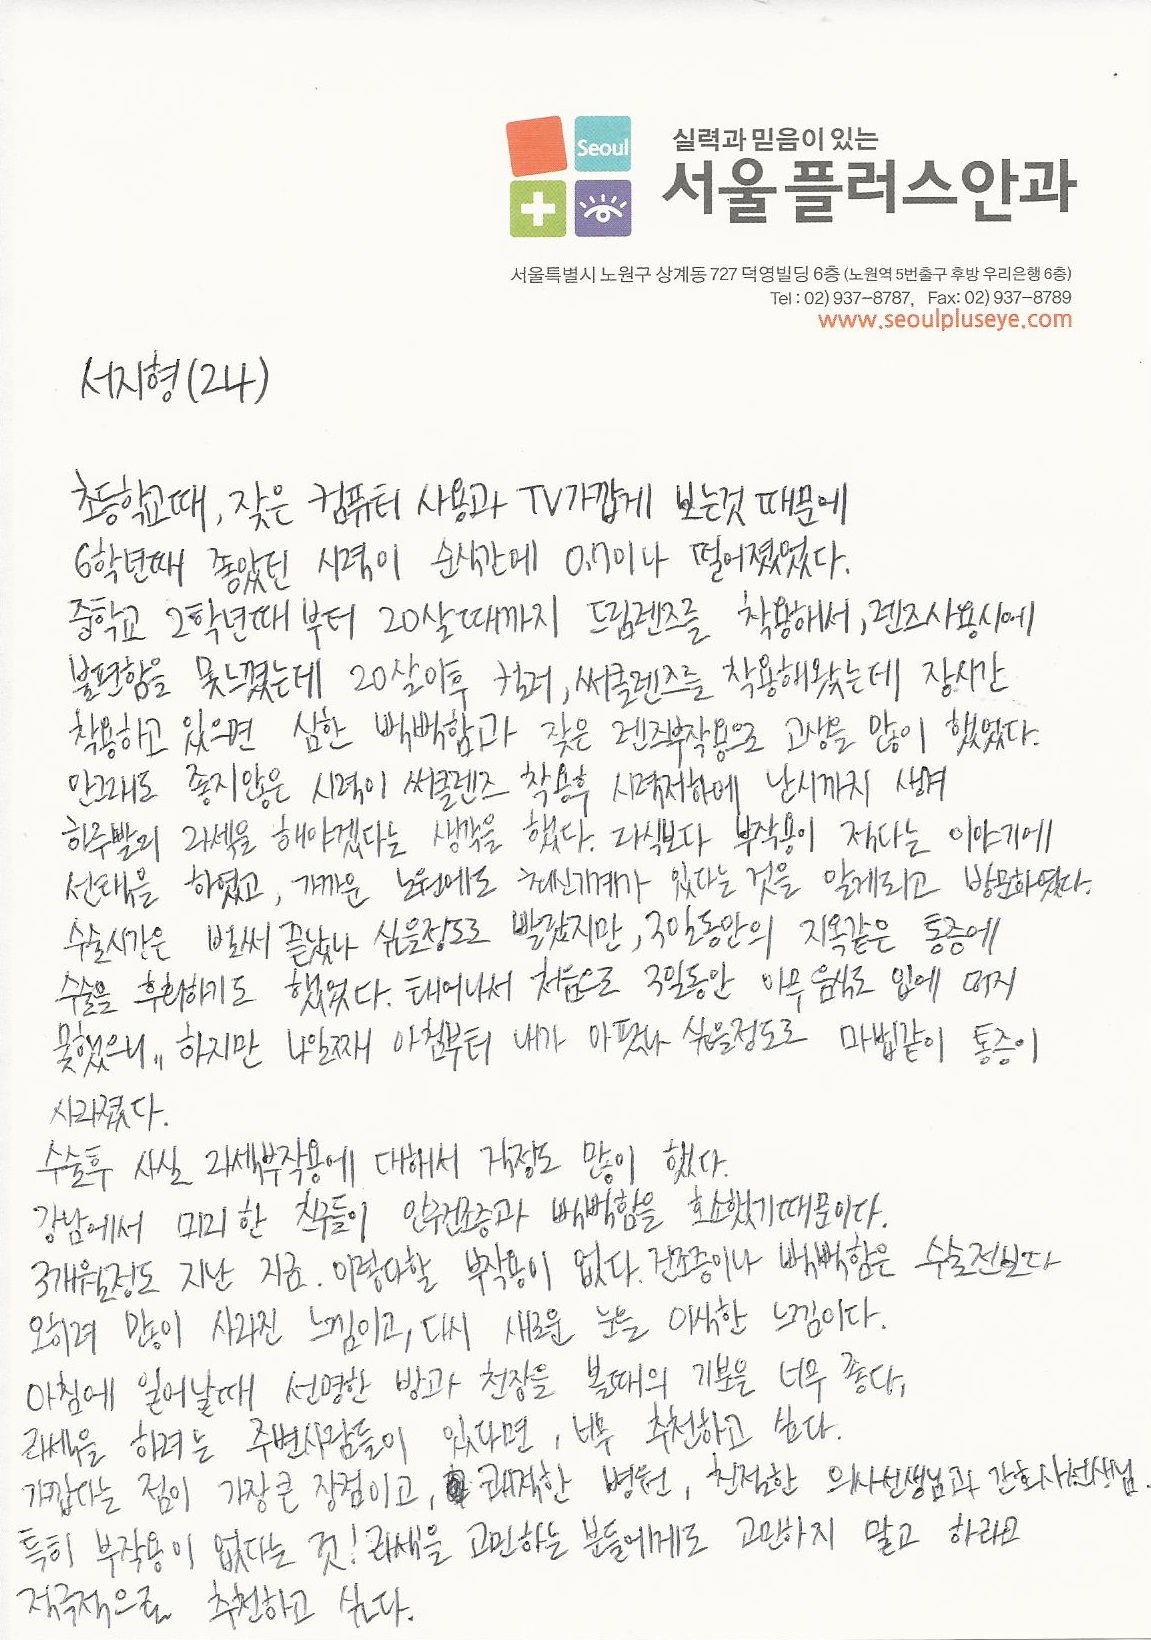 Seoul
실력과 믿음이 있는
서울플러스안과
서울특별시 노원구 상계동 727 덕영빌딩 6층 (노원역 5번출구 후방 우리은행 6층)
Tel : 02) 937-8787, Fax: 02) 937-8789
www.seoulpluseye.com
서지형(24)
초등학교때, 잦은 컴퓨터 사용과 TV가깝게 보는것 때문에
6학년때 좋았던 시력이 순식간에 0.7이나 떨어졌었다.
중학교 2학년때부터 20살때까지 드림렌즈를 착용해서, 렌즈사용시에
불편함을 못느꼈는데 20살이후 컬러, 써클렌즈를 착용해왔는데 장시간
착용하고 있으면 심한 뻑뻑함과 잦은 렌즈부작용으로 고생을 많이 했었다.
안그래도 좋지않은 시력이 써클렌즈 착용후 시력저하에 난시까지 생겨
하루빨리 라섹을 해야겠다는 생각을 했다. 라식보다 부작용이 적다는 이야기에
선택을 하였고, 가까운 노원에도 최신기계가 있다는 것을 알게되고 방문하였다.
수술시간은 벌써 끝났나 싶을정도로 빨랐지만, 3일동안의 지옥같은 통증에
수술을 후회하기도 했었다. 태어나서 처음으로 3일동안 아무 음식도 입에 먹지
못했으니,, 하지만 4일째 아침부터 내가 아팠나 싶을정도로 마법같이 통증이
사라졌다.
수술후 사실 라섹부작용에 대해서 걱정도 많이 했다.
강남에서 미리 한 친구들이 안구건조증과 뻑뻑함을 호소했기때문이다.
3개월정도 지난 지금. 이렇다할 부작용이 없다. 건조증이나 뻑뻑함은 수술전보다
오히려 많이 사라진 느낌이고, 다시 새로운 눈을 이식한 느낌이다.
아침에 일어날때 선명한 방과 천장을 볼때의 기분은 너무 좋다,
라섹을 하려는 주변사람들이 있다면, 너무 추천하고 싶다.
가깝다는 점이 가장큰 장점이고, 쾌적한 병원, 친절한 의사선생님과 간호사선생님.
특히 부작용이 없다는 것! 라섹을 고민하는 분들에게도 고민하지 말고 하라고
적극적으로 추천하고 싶다.